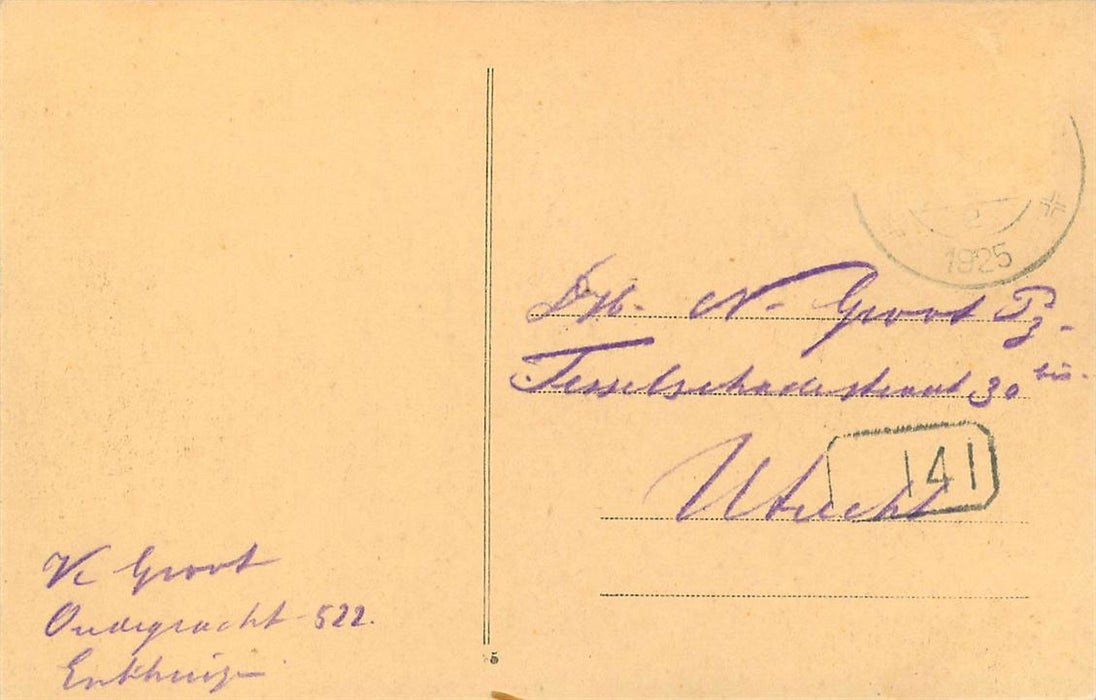 2
1925
N. Groot Pz.
Tesselschadestraat 30 bis.
Utrecht
141
K Groot
Oudegracht 522.
Enkhuizen
5